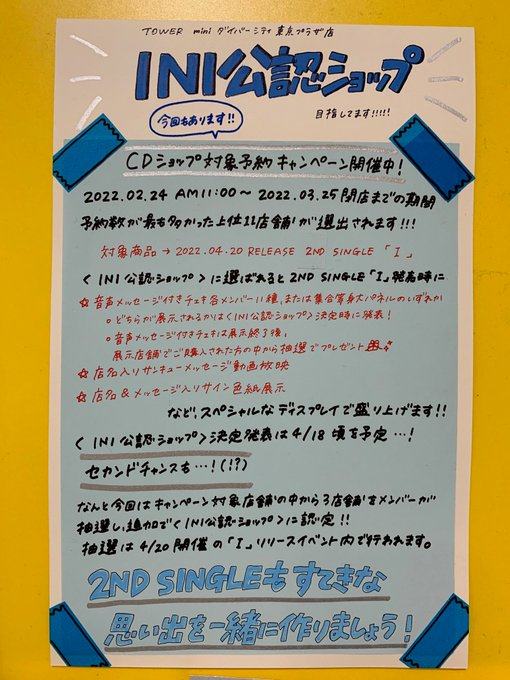 TOWER mini ダイバーシティ東京プラザ店
INI公認ショップ
今回もあります!!
目指してます!!!!!
CDショップ対象予約キャンペーン開催中!
2022.02.24 AM11:00〜2022.03.25閉店までの期間
予約数が最も多かった上位11店舗が選出されます!!!
対象商品→2022.04.20 RELEASE 2ND SINGLE「I」
〈INI公認ショップ〉に選ばれると2ND SINGLE「I」発売時に
☆音声メッセージ付きチェキ各メンバー11種、または集合等身大パネルのいずれか
。どちらが展示されるかは〈INI公認ショップ〉決定時に発表!
。音声メッセージ付チェキは展示終了後、
展示店舗でご購入された方の中から抽選でプレゼント
☆店名入りサンキューメッセージ動画放映
☆店名&メッセージ入りサイン色紙展示
など、スペシャルなディスプレイで盛り上げます!!
〈INI公認ショップ〉決定発表は4/18頃を予定…!
セカンドチャンスも…!(!?)
なんと今回はキャンペーン対象店舗の中から3店舗をメンバーが
抽選し、追加で〈INI公認ショップ〉に認定!!
抽選は4/20開催の「I」リリースイベント内で行われます。
2ND SINGLEもすてきな
思い出を一緒に作りましょう!